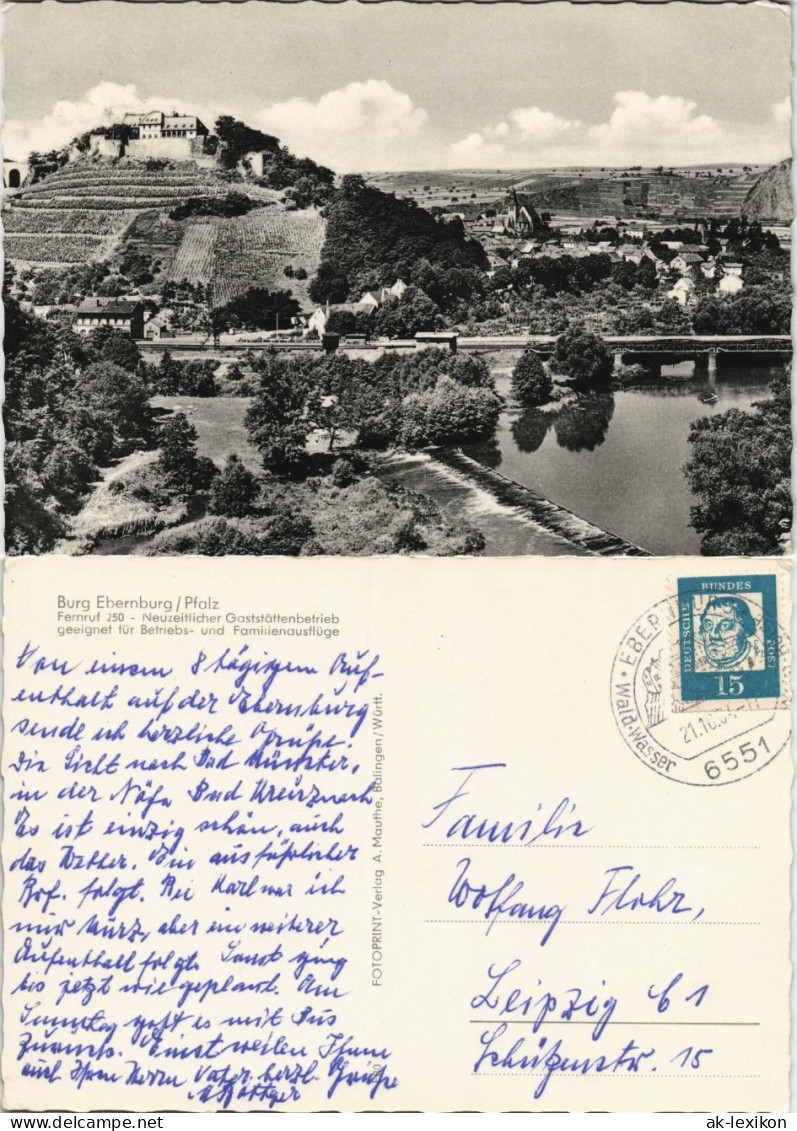 Burg Ebernburg/Pfalz
Fernruf 250 - Neuzeitlicher Gaststättenbetrieb
geeignet für Betriebs- und Familienausflüge
Von einem 8 tägigem Auf-
enthalt auf der Ebernburg
sende ich herzliche Grüße.
Die Sicht nach Bad Münster,
in der Nähe Bad Kreuznach
Es ist einzig schön, auch
das Wetter. Ein ausführlicher
Brf. folgt. Bei Karl war ich
nur kurz, aber ein weiterer
Aufenthalt folgt. Sonst ging
bis jetzt wie geplant. Am
Samstag geht es mit Bus
zurück. Einstweilen Ihnen
auch Ihrem Herrn Vater herzl. Grüße
FOTOPRINT-Verlag A. Mauthe, Balingen/Württ.
DEUTSCHE
BUNDES
POST
15
EBERNBURG
Wald·Wasser
21.10.
6551
Familie
Wolfgang Flohr,
Leipzig C 1
Schützenstr. 15
ak-lexikon
© www.delcampe.net